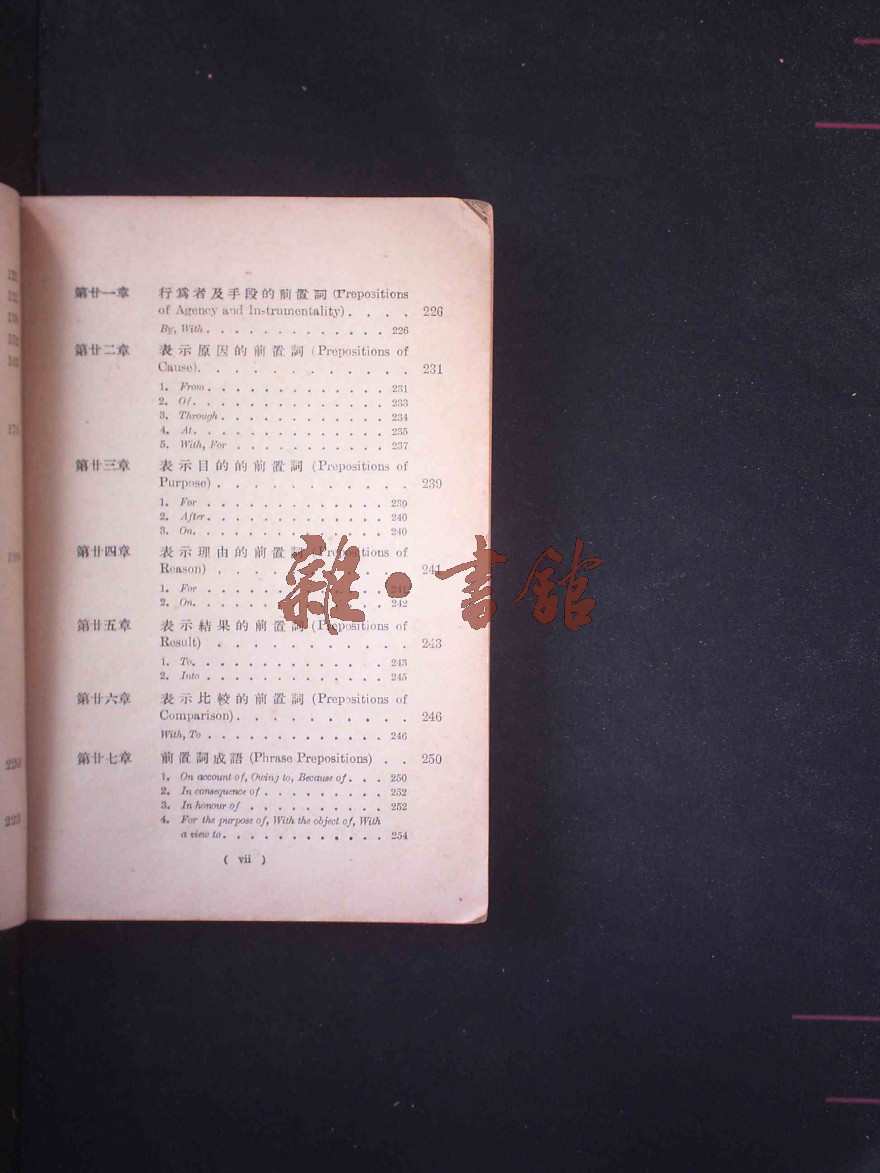 第廿一章 行爲者及手段的前置詞 (Prepositions
of Agency and Instrumentality) . . . . 226
By, With . . . . . . . . . . . . . 226
第廿二章 表示原因的前置詞 (Prepositions of
Cause) . . . . . . . . . . . 231
1. From . . . . . . . . . . . . . 231
2. Of . . . . . . . . . . . . . . 233
3. Through . . . . . . . . . . . . 234
4. At . . . . . . . . . . . . . . 235
5. With, For . . . . . . . . . . . 237
第廿三章 表示目的的前置詞 (Prepositions of
Purpose) . . . . . . . . . . 239
1. For . . . . . . . . . . . . . 239
2. After . . . . . . . . . . . . . 240
3. On . . . . . . . . . . . . . . 240
第廿四章 表示理由的前置詞 (Prepositions of
Reason) . . . . . . . . . . 241
1. For . . . . . . . . . . . . . 241
2. On . . . . . . . . . . . . . . 242
第廿五章 表示結果的前置詞 (Prepositions of
Result) . . . . . . . . . . 243
1. To . . . . . . . . . . . . . . 243
2. Into . . . . . . . . . . . . . 245
第廿六章 表示比較的前置詞 (Prepositions of
Comparison) . . . . . . . . . 246
With, To . . . . . . . . . . . . . 246
第廿七章 前置詞成語 (Phrase Prepositions) . . 250
1. On account of, Owing to, Because of . . . 250
2. In consequence of . . . . . . . . . 252
3. In honour of . . . . . . . . . . 252
4. For the purpose of, With the object of, With
a view to . . . . . . . . . . . . 254
( vii )
雜·書館
220